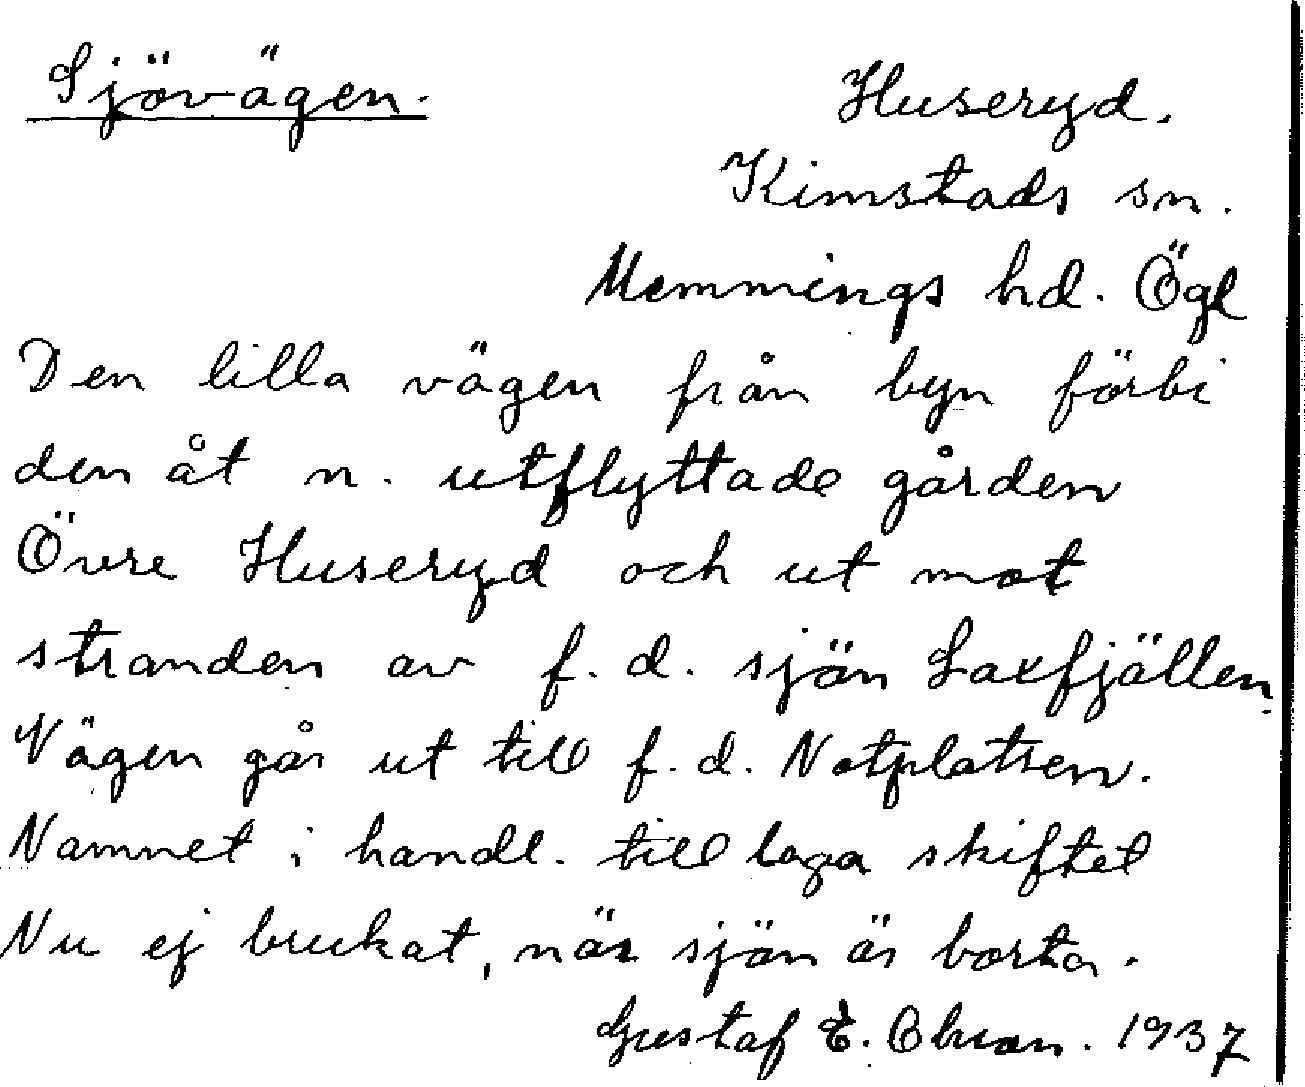 Sjövägen.
Huseryd.
Kimstads sn.
Memmings hd. Ögl
Den lilla vägen från byn förbi
den åt n. utflyttade gården
Övre Huseryd och ut mot
stranden av f. d. sjön Laxfjällen.
Vägen går ut till f. d. Notplatsen.
Namnet i handl. till laga skiftet
Nu ej brukat, när sjön är borta.
Gustaf E. 1937